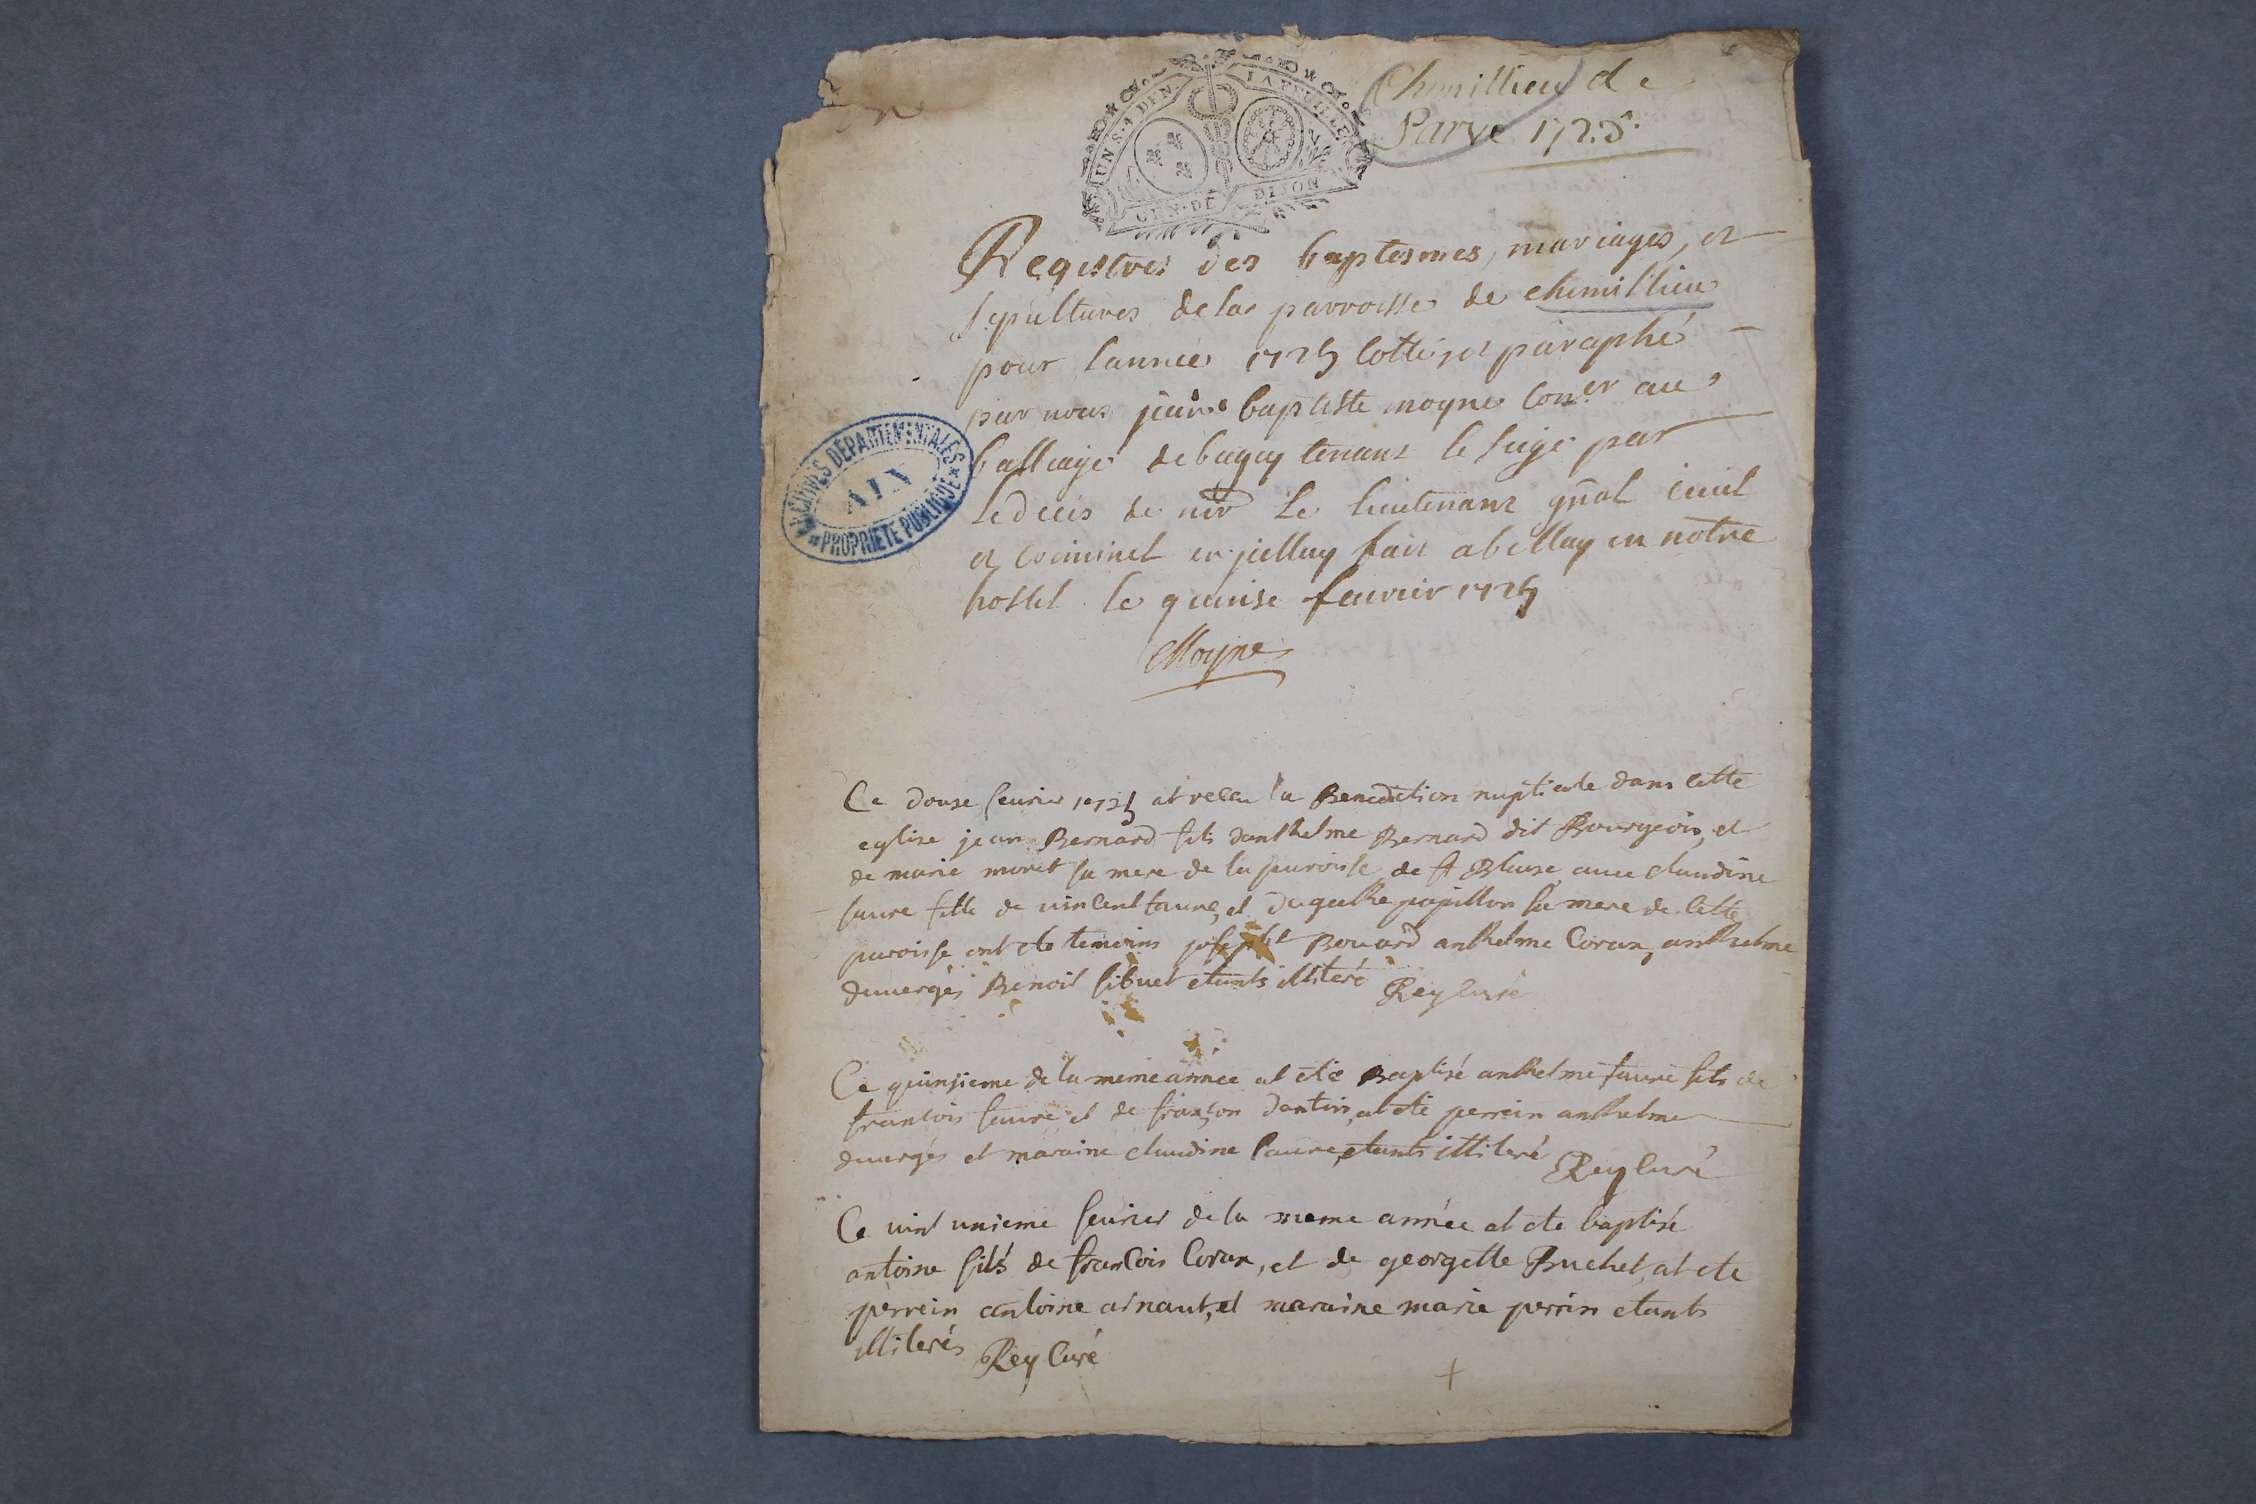 Chemillieu de
Parve 1725.
UN S. 4 DEN. LA FEUILLE
GEN. DE DIJON
Registres des baptesmes, mariages, et
sepultures de la parroisse de chemillieu
pour lannee 1725 cotté et paraphé
par nous jean baptiste moyne Con.er au
balliage de bugey tenant le siege par
le deces de mr le lieutenant gnal civil
et criminel en jcelluy fait a belley en notre
hostel le quinse feuvrier 1725
Moyne
ARCHIVES DÉPARTEMENTALES
AIN
PROPRIÉTÉ PUBLIQUE
Ce douse feurier 1725 at receu la Benediction nuptiale dans cette
eglise jean Bernard fils danthelme Bernard dit Bourgeois, et
de marie moret sa mere de la paroisse de st Blaise avec claudine
faure fille de vincent faure, et papillon sa mere de cette
paroisse ont ete temoins joseph Bouard anthelme Coran, anthelme
duvergés Benoit sibuet étants illiteré Rey Curé
Ce quinsieme de la meme année at eté Baptisé anthelme faure fils de
francois faure et de françon dantin, at eté perrein anthelme
duvergés et maraine claudine faure, étants illiteré Rey Curé
Ce vint unieme feurier de la meme année at ete baptisé
antoine fils de francois Coran, et de georgette Buchet, at ete
perrein antoine arnaut, et maraine marie perrin etants
illiterés Rey Curé